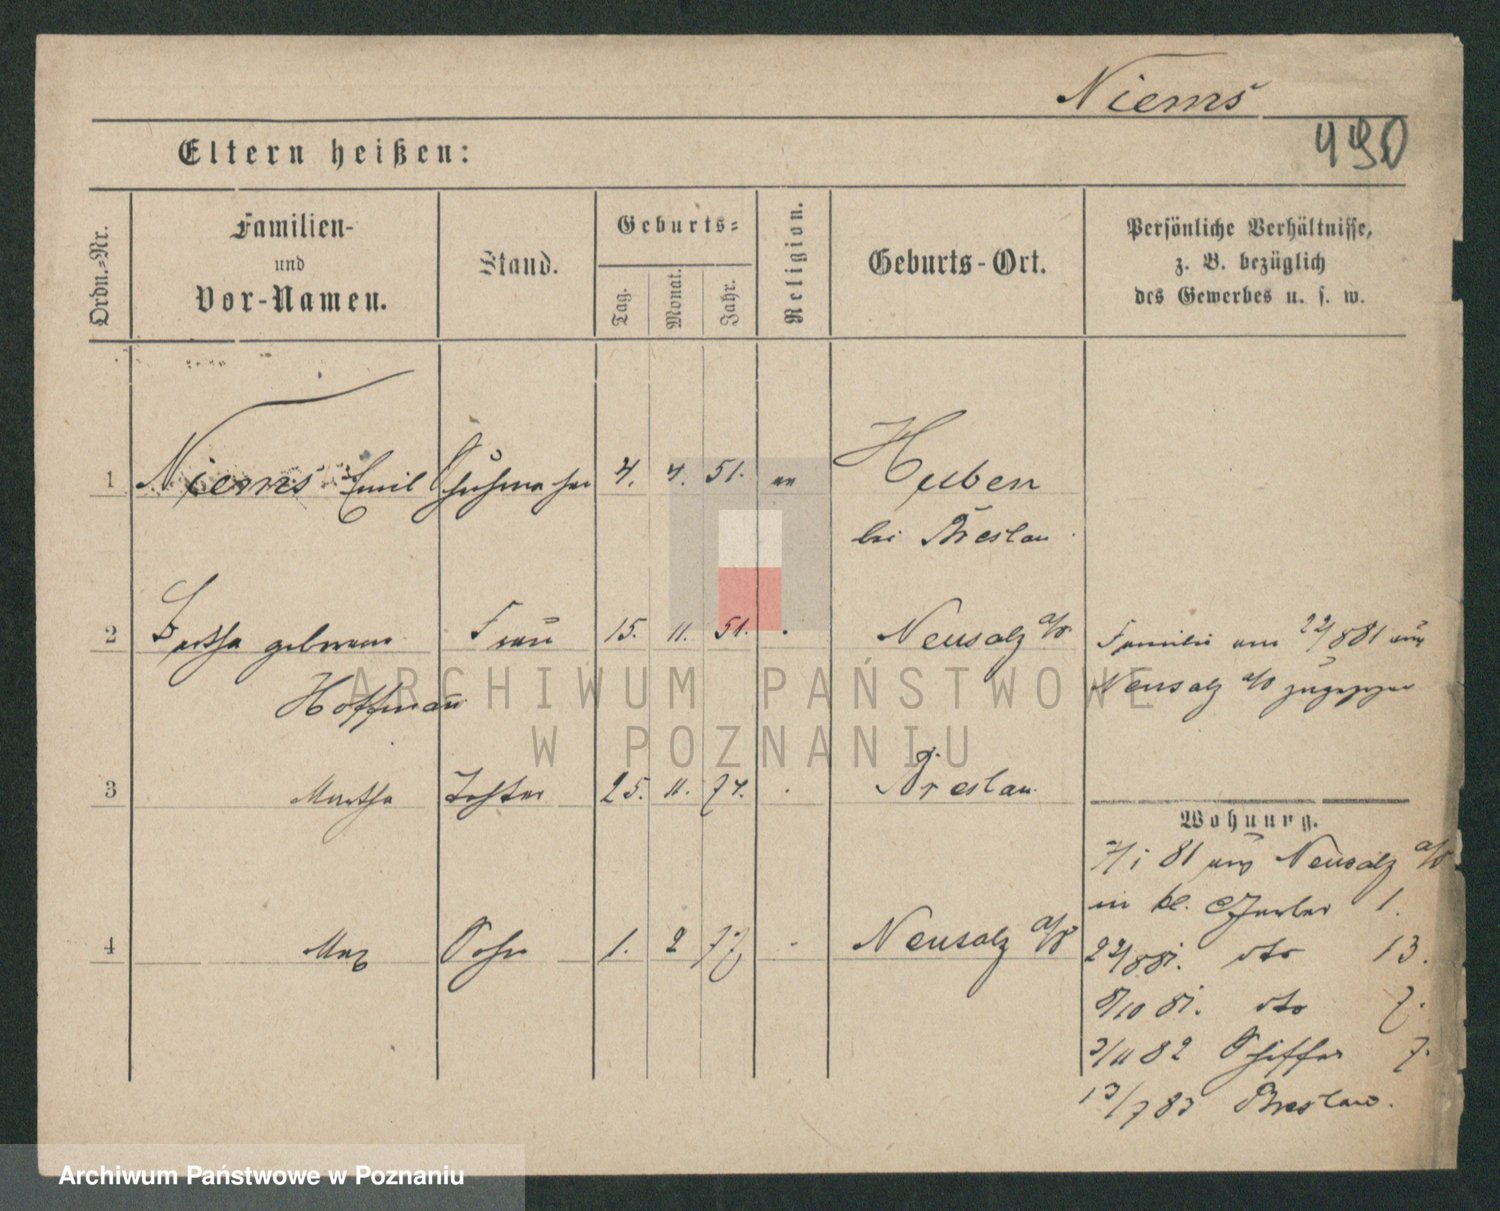 Niems
490
Eltern heißen:
Ordn.-Nr.
Familien-
und
Vor-Namen.
Stand.
Geburts-
Tag.
Monat.
Jahr.
Religion.
Geburts-Ort.
Persönliche Verhältnisse,
z. B. bezüglich
des Gewerbes u. s. w.
1 Niems Emil Schuhmacher 4. 4. 51. ev Huben
bei Breslau
2 Bertha geborene Frau 15. 11. 51. Neusalz a/O
Hoffman
Familie am 22/8 81 aus
Neusalz a/O zugezogen
3 Martha Tochter 25. 11. 74. Breslau
4 Max Sohn 1. 2 77 Neusalz a/O
Wohnung.
7/1 81 aus Neusalz a/O
in kl. 1.
22/8 81. dto 13.
8/10 81. dto 7.
2/11 82 Schiffer 7.
13/7 83 Breslau.
ARCHIWUM PAŃSTWOWE
W POZNANIU
Archiwum Państwowe w Poznaniu